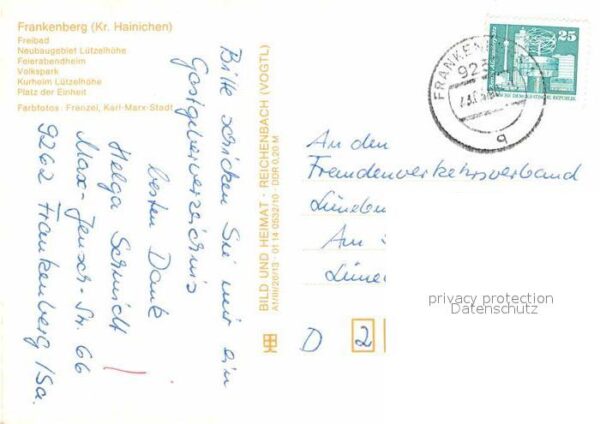 Frankenberg (Kr. Hainichen)
Freibad
Neubaugebiet Lützelhöhe
Feierabendheim
Volkspark
Kurheim Lützelhöhe
Platz der Einheit
Farbfotos: Frenzel, Karl-Marx-Stadt
Bitte schicken Sie mir ein
Gastgeberverzeichnis
besten Dank
Helga Schmidt
Max-Jensch-Str. 66
9262 Frankenberg/Sa.
BILD UND HEIMAT · REICHENBACH (VOGTL)
A1/III/26/13 · 01 14 0532/10 · DDR 0,20 M
25
FRANKEN
an den
Fremdenverkehrsverband
Am
D 2
privacy protection
Datenschutz